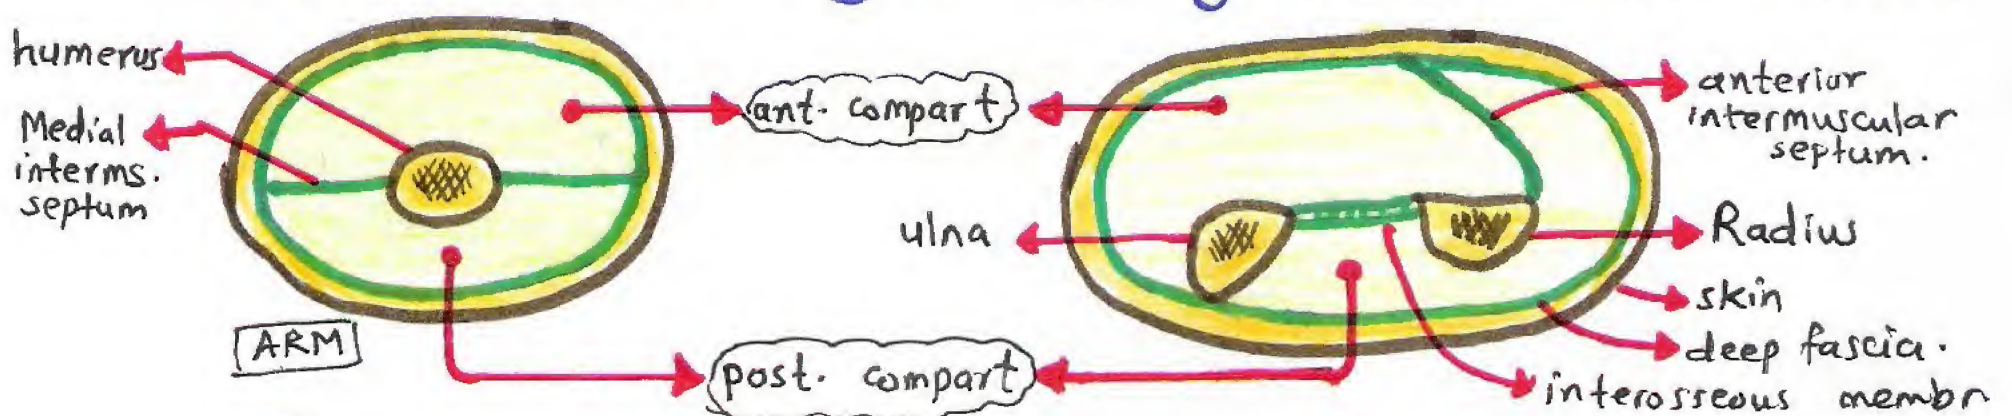 humerus
Medial
interms.
septum
ARM
ant. compart
post. compart
ulna
anterior
intermuscular
septum.
Radius
skin
deep fascia.
interosseous membr